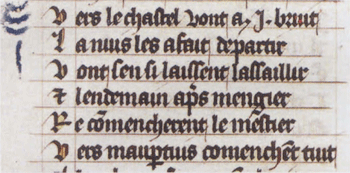 Vers le chastel vont a .J. bruit
La nuis les a fait departir
Vont sen si laissent lassaillir
Et lendemain aps mengier
Re cōmencherent le mestier
Vers maupertuis comenchēt tuit